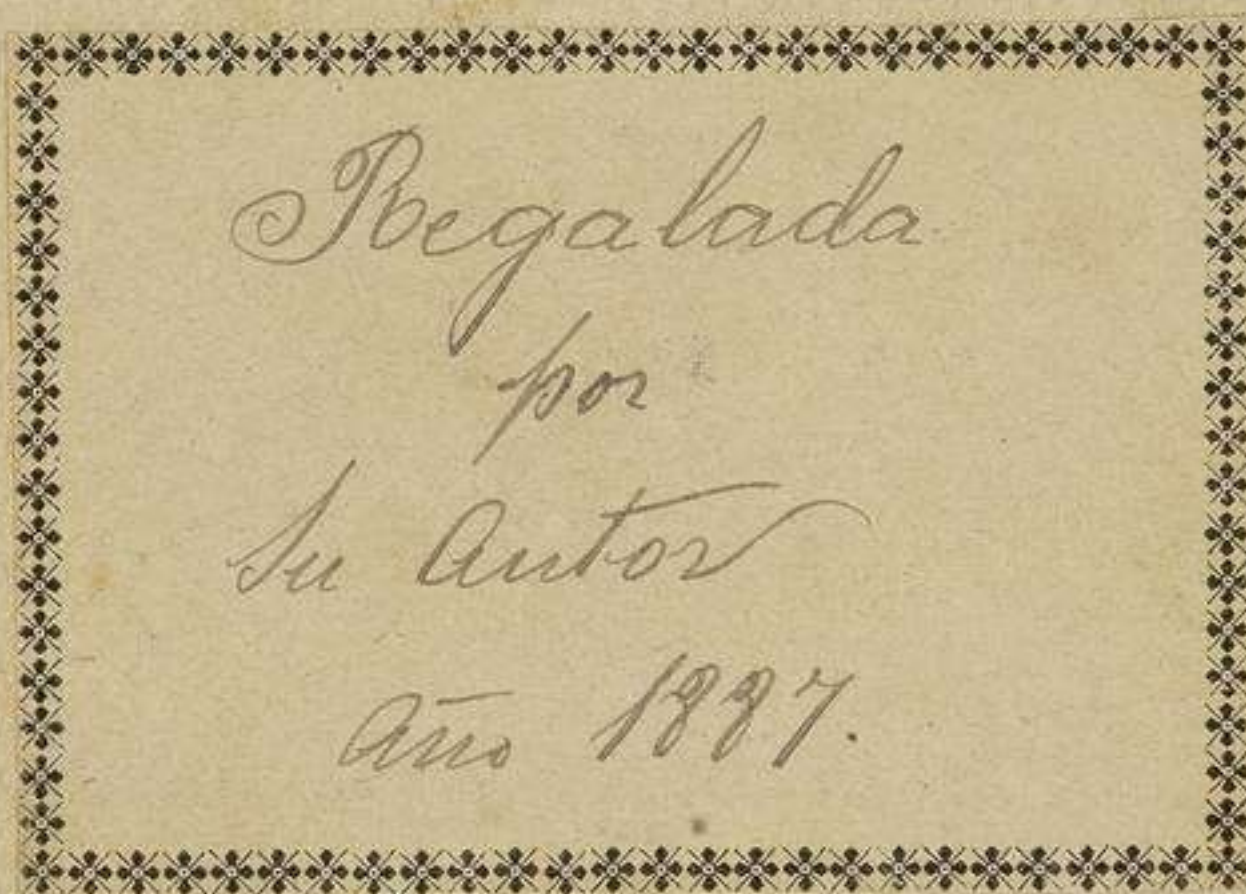 Regalada
por
Su Autor
Año 1887.